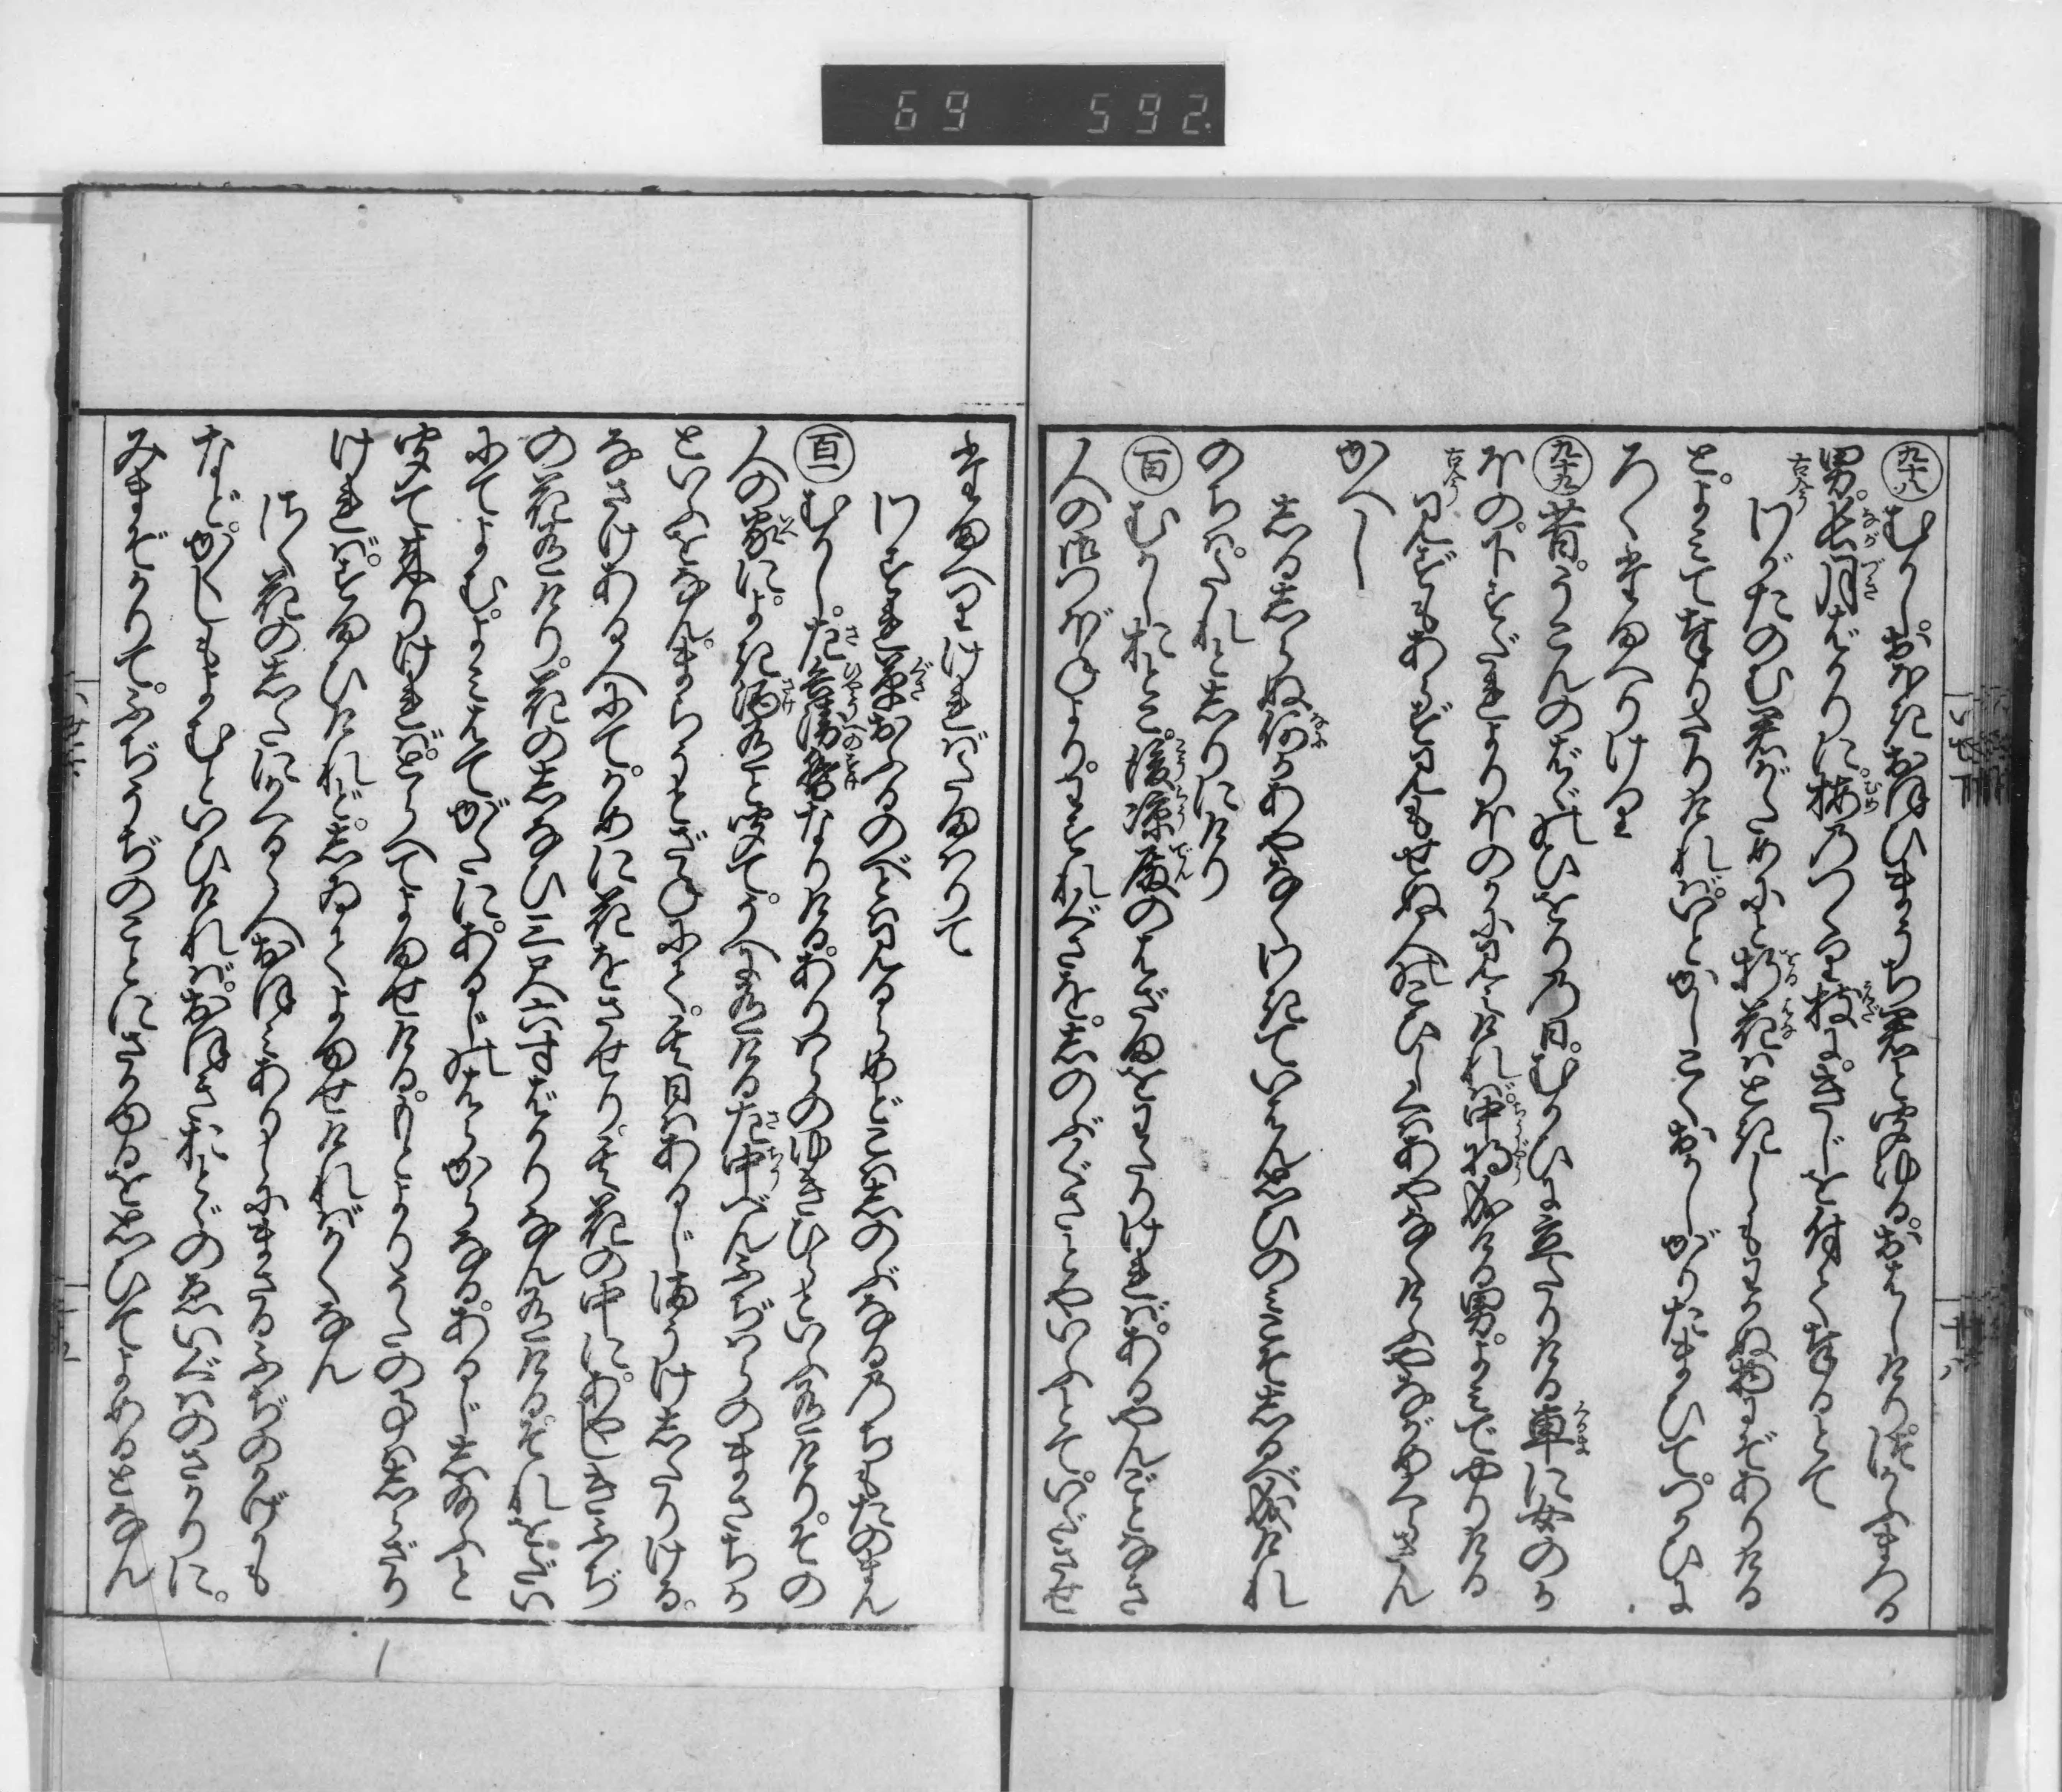 69 592
九十八 むかし。おほきおほいまうち君と聞ゆる。おはしけり。つかうまつる
男。長月ばかりに。梅のつくり枝に。きじを付て奉るとて
古今 わがたのむ君がためにと折花はときしもわかぬ物にぞありける
とよみて奉りたりければ。いとかしこくおかしがりたまひて。つかひに
ろくたまへりけり
九十九 昔。うこんのばばのひをりの日。むかひに立たりける車に女のか
ほの。下すだれよりほのかに見えければ。中将なりける男。よみてやりける
古今 見ずもあらず見もせぬ人のこひしくはあやなくけふやながめくらさん
かへし
しるしらぬ何かあやなくわきていはん思ひのみこそしるべなりけれ
のちはたれとしりにけり
百 むかしおとこ。後涼殿のはざまをわたりければ。あるやんごとなき
人の御つぼねより。わすれぐさを。しのぶぐさとやいふとて。いださせ
たまへりければたまはりて
わすれ草おふるのべとは見るらめどこはしのぶなり乃ちもたのまん
百一 むかし。左兵衛督なりける。ありはらのゆきひらといふ有けり。その
人の家に。よき酒有と聞て。うへに有ける左中べんふぢはらのまさちか
といふをなん。まらうとざねにて。其日はあるじまうけしたりける。
なさけある人にて。かめに花をさせり。其花の中に。あやしきふぢ
の花有けり。花のしなひ三尺六寸ばかりなん有ける。それをだい
にてよむ。よみはてがたに。あるじのはらからなる。あるじし給ふと
聞て来りければ。とらへてよませける。もとよりうたの事はしらざり
ければ。すまひけれど。しゐてよませければかくなん
さく花のしたにかくるゝ人おほみありしにまさるふぢのかげかも
など。かくしもよむといひければ。おほきおとゞのゑいぐはのさかりに。
みまぞかりて。ふぢうぢのことにさかゆるを思ひてよめるとなん